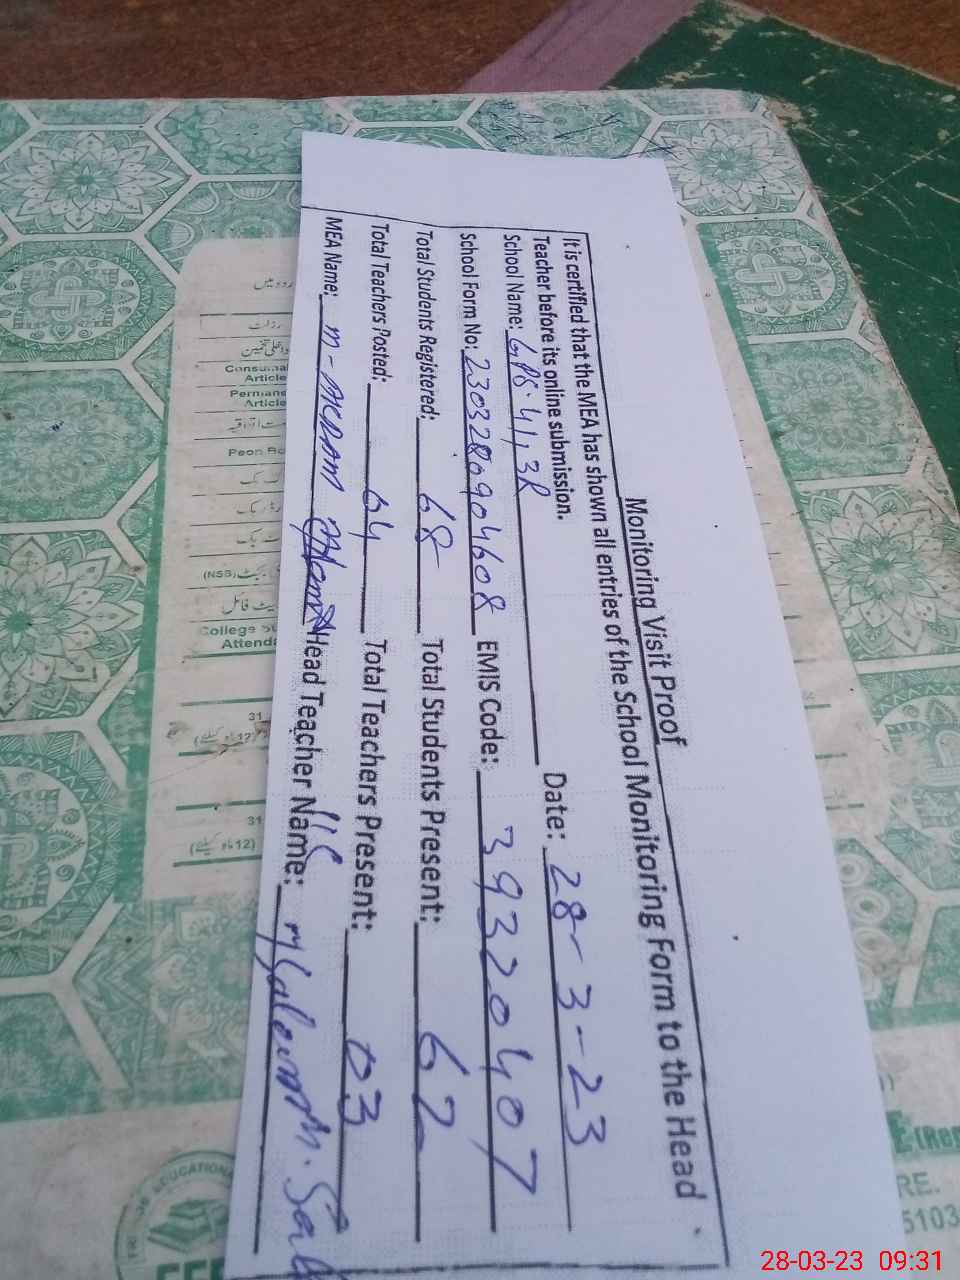 Monitoring Visit Proof
It is certified that the MEA has shown all entries of the School Monitoring Form to the Head
Teacher before its online submission.
School Name: GPS. 41, 3R Date: 28-3-23
School Form No: 2303280904608 EMIS Code: 39320407
Total Students Registered: 68 Total Students Present: 62
Total Teachers Posted: 04 Total Teachers Present: 03
MEA Name: M- Akram Head Teacher Name:
اردو میں
رزلٹ
Article
Article
Peon
(NSB)
College
Attend
31
31
EDUCATIONAL
RE.
5103
28-03-23 09:31